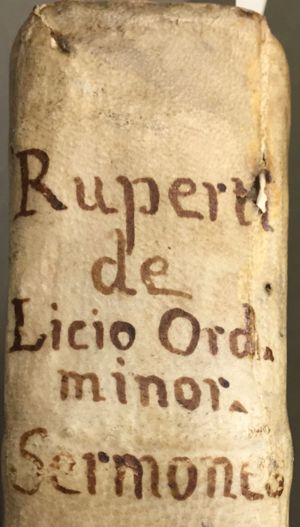 Ruperti
de
Licio Ord.
minor.
Sermones